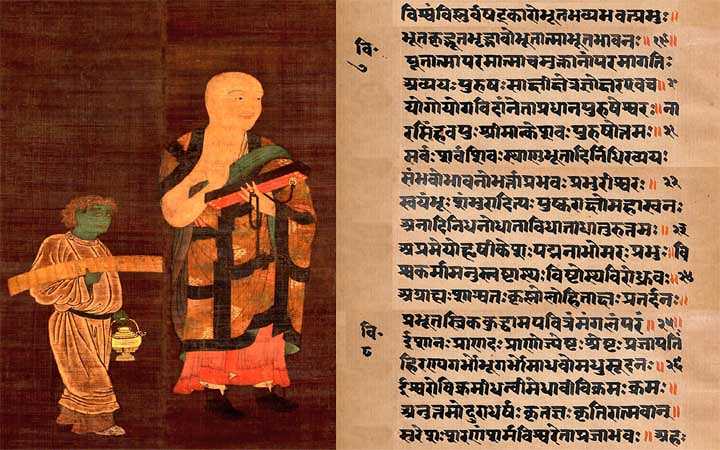 विश्वंविस्नुर्वषट्कारोभूतभव्यभवत्प्रभुः॥
भूतकृद्भूतभृद्भावोभूतात्माभूतभावनः॥१९॥
वि॰
७
पूतात्मापरमात्माचमुक्तानांपरमागतिः
अव्ययःपुरुषःसाक्षीक्षेत्रज्ञोक्षरएवच॥२०
योगोयोगविदांनेताप्रधानपुरुषेश्वरः॥ना
रसिंहवपुःश्रीमान्केशवःपुरुषोत्तमः॥२१
सर्वःशर्वःशिवःस्थाणुर्भूतादिर्निधिरव्ययः
संभवोभावनोभर्त्ताप्रभवःप्रभुरीश्वरः॥२२
स्वयंभूःशम्भुरादित्यःपुष्कराक्षोमहास्वनः
अनादिनिधनोधाताविधाताधातुरुत्तमः॥२३
अप्रमेयोहृषीकेशःपद्मनाभोमरःप्रभुः॥वि
श्वकर्मामनुस्त्वष्टास्थःविष्टोस्थविरोध्रुवः॥२४
अग्राह्यःशाश्वतःकृस्नोलोहिताक्षःप्रतर्दनः॥
प्रभूतस्त्रिककुद्धामपवित्रंमंगलंपरं॥२५॥
वि॰
८
ईशानःप्राणदःप्राणोज्येष्टःश्रेष्टःप्रजापतिः
हिरण्यगर्भोभूगर्भोमाधवोमधुसूदनः॥२६
ईश्वरोविक्रमीधन्वीमेधावीविक्रमःक्रमः
अनुत्तमोदुराधर्षःकृतज्ञःकृतिरात्मवान्॥
सुरेशःशरणंशर्मविश्वरेताप्रजाभवः॥अहः